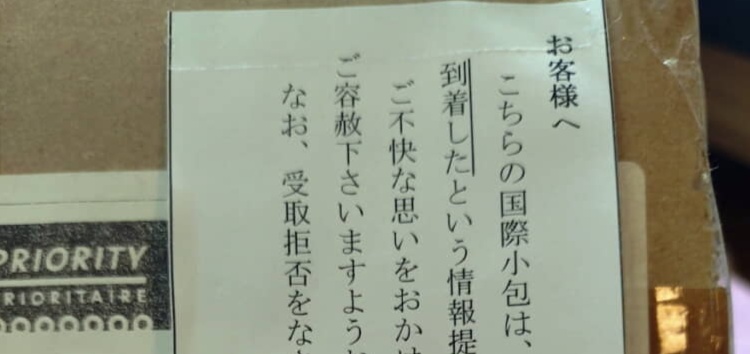 お客様へ
こちらの国際小包は、
到着したという情報提
ご不快な思いをおかけ
ご容赦下さいますようお
なお、受取拒否をな
PRIORITY
PRIORITAIRE